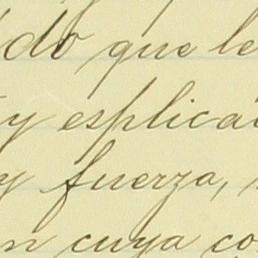 do que le
y esplica
y fuerza,
n cuya co